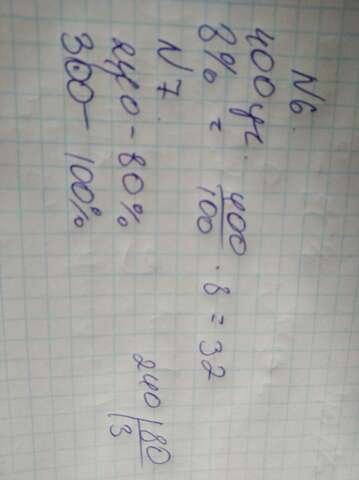 N6.
400 уч.
8% = 400/100 · 8 = 32
N7.
240 - 80%
300 - 100%
240 |80
3